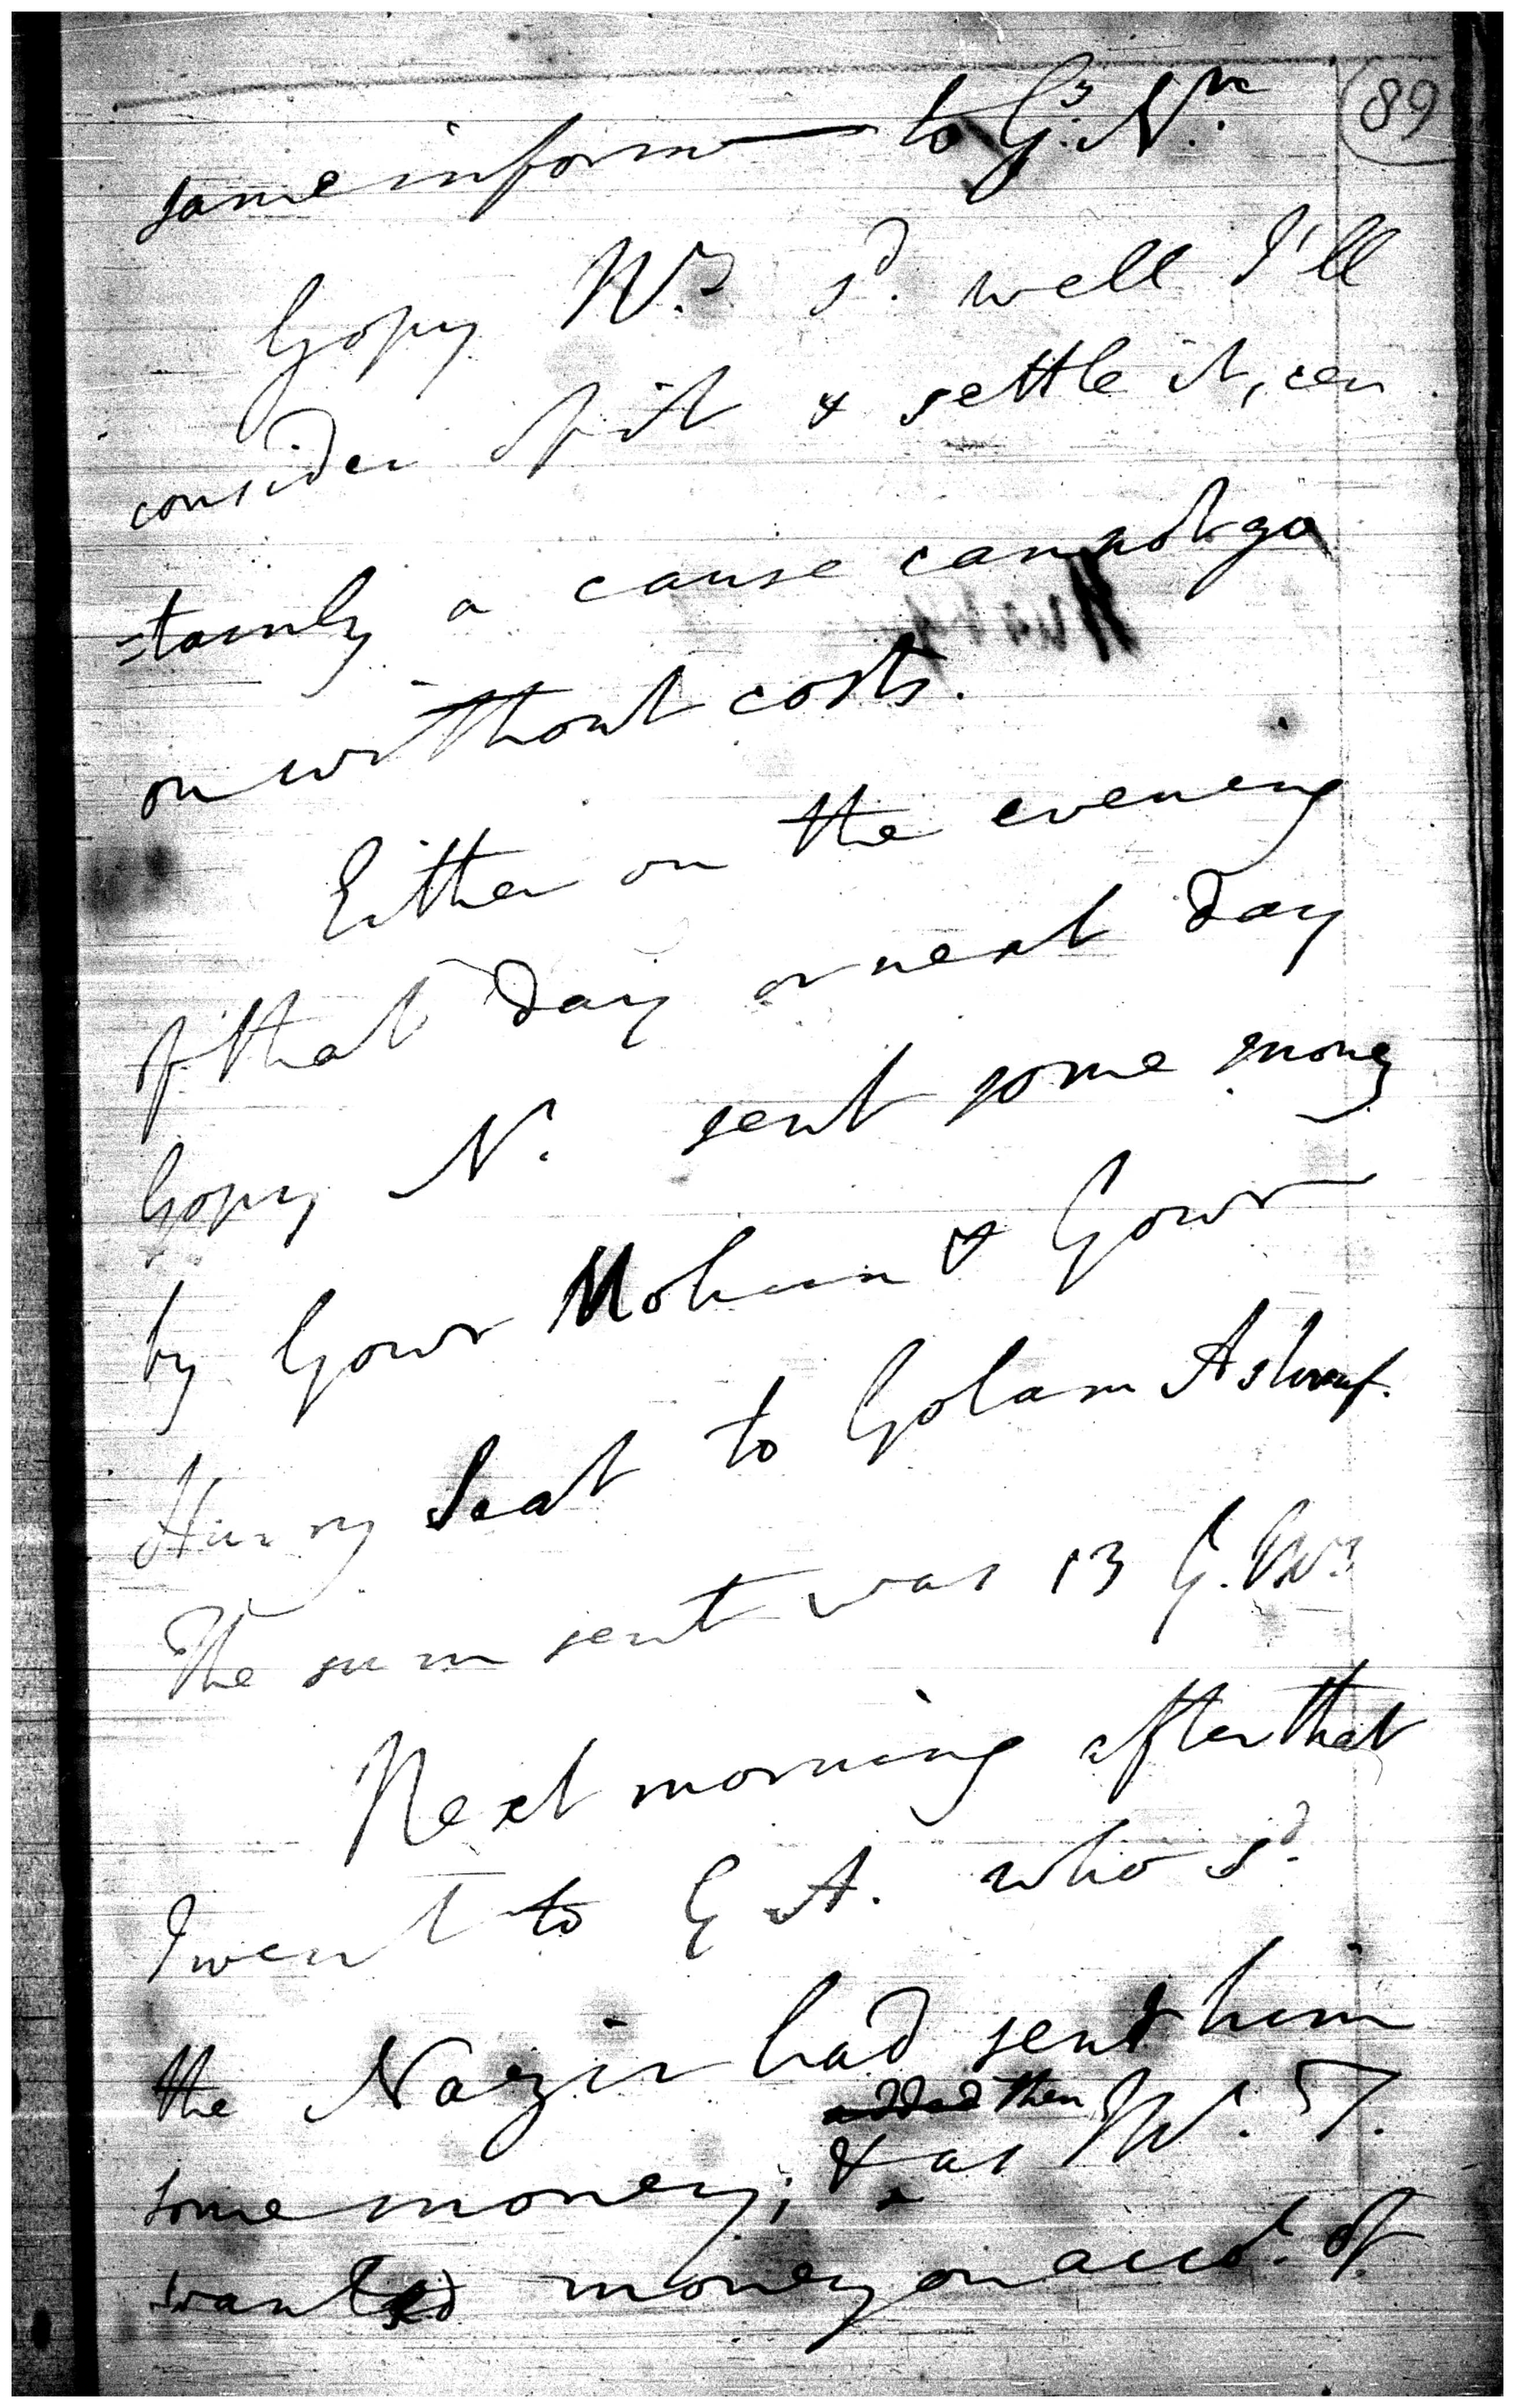 89
same inform— to G.y N.r
Gopy N.r s.d well I'll
consider of it & settle it, cer
=tainly a cause cannot go
on without costs.
Either on the evening
of that day or next day
Gopy N.r sent some money
by Gowr Mohun & Gowr
Hurry Seat to Golam Ashruf.
The sum sent was 13 G. M.rs
Next morning after that
I went to G A. who s.d
the Nazir had sent him
added then
some money; & as W. T.
wanted money on acco.t of